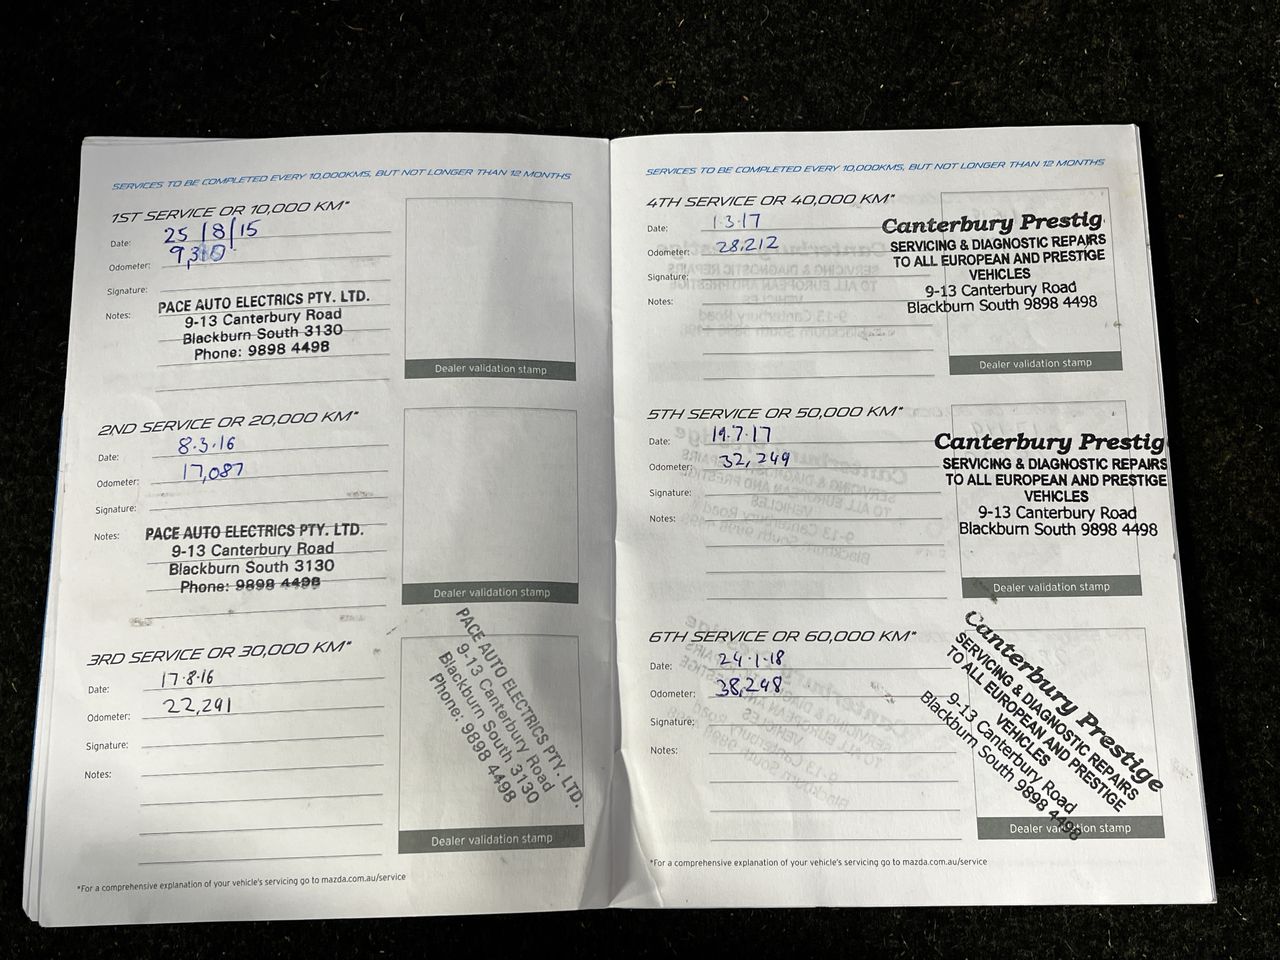 SERVICES TO BE COMPLETED EVERY 10,000KMS, BUT NOT LONGER THAN 12 MONTHS
1ST SERVICE OR 10,000 KM*
Date: 25/8/15
Odometer:
Signature:
Notes:
PACE AUTO ELECTRICS PTY. LTD.
9-13 Canterbury Road
Blackburn South 3130
Phone: 9898 4498
Dealer validation stamp
2ND SERVICE OR 20,000 KM*
Date: 8.3.16
Odometer: 17,087
Signature:
Notes:
PACE AUTO ELECTRICS PTY. LTD.
9-13 Canterbury Road
Blackburn South 3130
Phone: 9898 4498
Dealer validation stamp
3RD SERVICE OR 30,000 KM*
Date: 17.8.16
Odometer: 22,291
Signature:
Notes:
PACE AUTO ELECTRICS PTY. LTD.
9-13 Canterbury Road
Blackburn South 3130
Phone: 9898 4498
Dealer validation stamp
*For a comprehensive explanation of your vehicle's servicing go to mazda.com.au/service
SERVICES TO BE COMPLETED EVERY 10,000KMS, BUT NOT LONGER THAN 12 MONTHS
4TH SERVICE OR 40,000 KM*
Date: 1.3.17
Odometer: 28,212
Signature:
Notes:
Canterbury Prestig
SERVICING & DIAGNOSTIC REPAIRS
TO ALL EUROPEAN AND PRESTIGE
VEHICLES
9-13 Canterbury Road
Blackburn South 9898 4498
Dealer validation stamp
5TH SERVICE OR 50,000 KM*
Date: 19.7.17
Odometer: 32,249
Signature:
Notes:
Canterbury Prestig
SERVICING & DIAGNOSTIC REPAIRS
TO ALL EUROPEAN AND PRESTIGE
VEHICLES
9-13 Canterbury Road
Blackburn South 9898 4498
Dealer validation stamp
6TH SERVICE OR 60,000 KM*
Date: 24.1.18
Odometer: 38,248
Signature:
Notes:
Canterbury Prestige
SERVICING & DIAGNOSTIC REPAIRS
TO ALL EUROPEAN AND PRESTIGE
VEHICLES
9-13 Canterbury Road
Blackburn South 9898 4498
Dealer validation stamp
*For a comprehensive explanation of your vehicle's servicing go to mazda.com.au/service